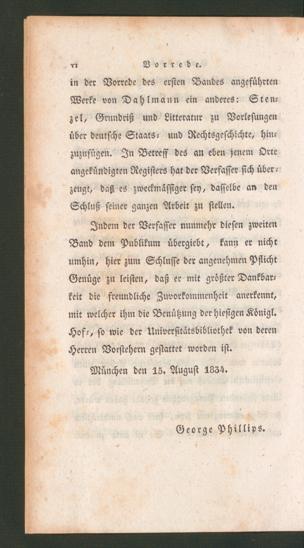 VI Vorrede.
in der Vorrede des ersten Bandes angeführten
Werke von Dahlmann ein anderes: Sten-
zel, Grundriß und Litteratur zu Vorlesungen
über deutsche Staats- und Rechtsgeschichte, hin-
zuzufügen. In Betreff des an eben jenem Orte
angekündigten Registers hat der Verfasser sich über-
zeugt, daß es zweckmässiger sey, dasselbe an den
Schluß seiner ganzen Arbeit zu stellen.
Indem der Verfasser nunmehr diesen zweiten
Band dem Publikum übergiebt, kann er nicht
umhin, hier zum Schlusse der angenehmen Pflicht
Genüge zu leisten, daß er mit größter Dankbar-
keit die freundliche Zuvorkommenheit anerkennt,
mit welcher ihm die Benützung der hiesigen Königl.
Hof-, so wie der Universitätsbibliothek von deren
Herren Vorstehern gestattet worden ist.
München den 15. August 1834.
George Phillips.